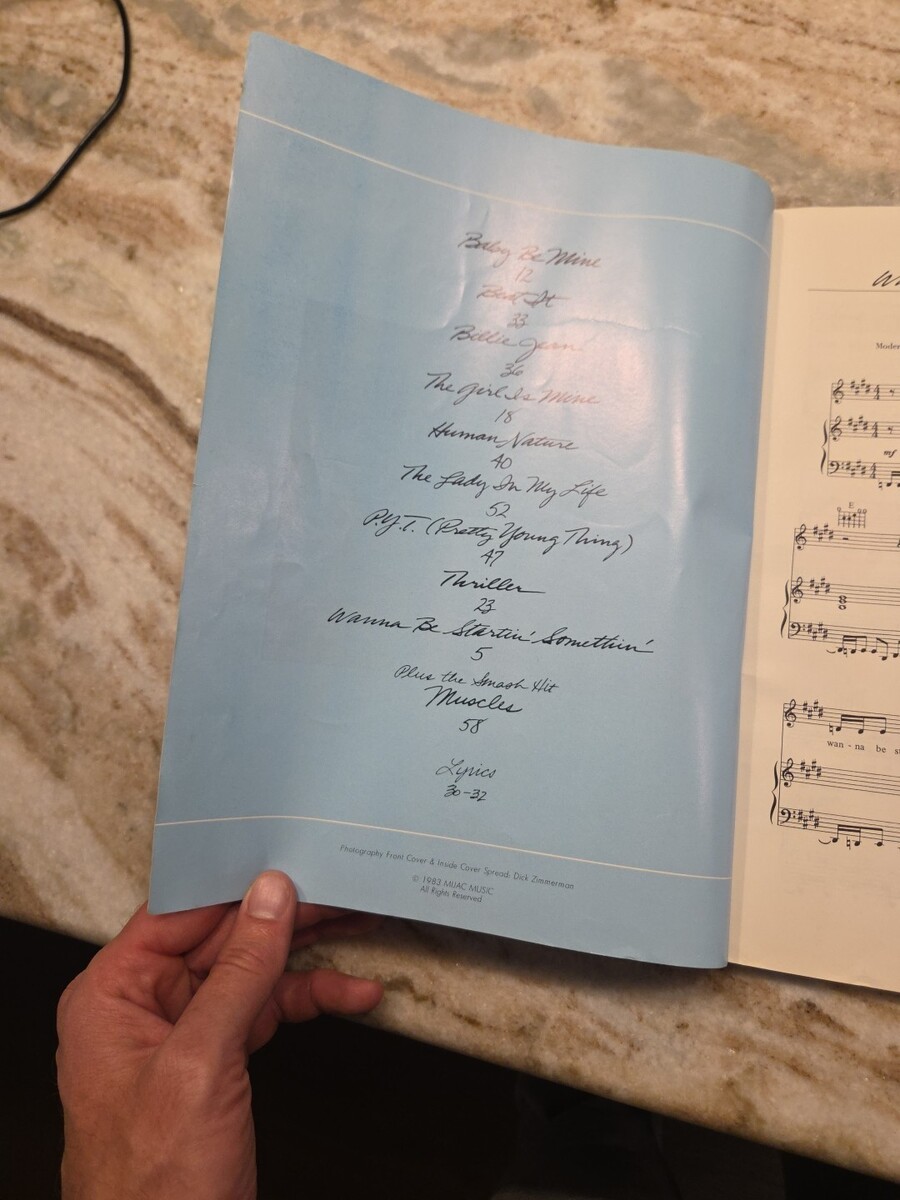 Baby Be Mine
12
Beat It
33
Billie Jean
36
The Girl Is Mine
18
Human Nature
40
The Lady In My Life
52
P.Y.T. (Pretty Young Thing)
47
Thriller
23
Wanna Be Startin' Somethin'
5
Plus the Smash Hit
Muscles
58
Lyrics
30-32
Photography Front Cover & Inside Cover Spread: Dick Zimmerman
© 1983 MIJAC MUSIC
All Rights Reserved
mf
E
wan - na be